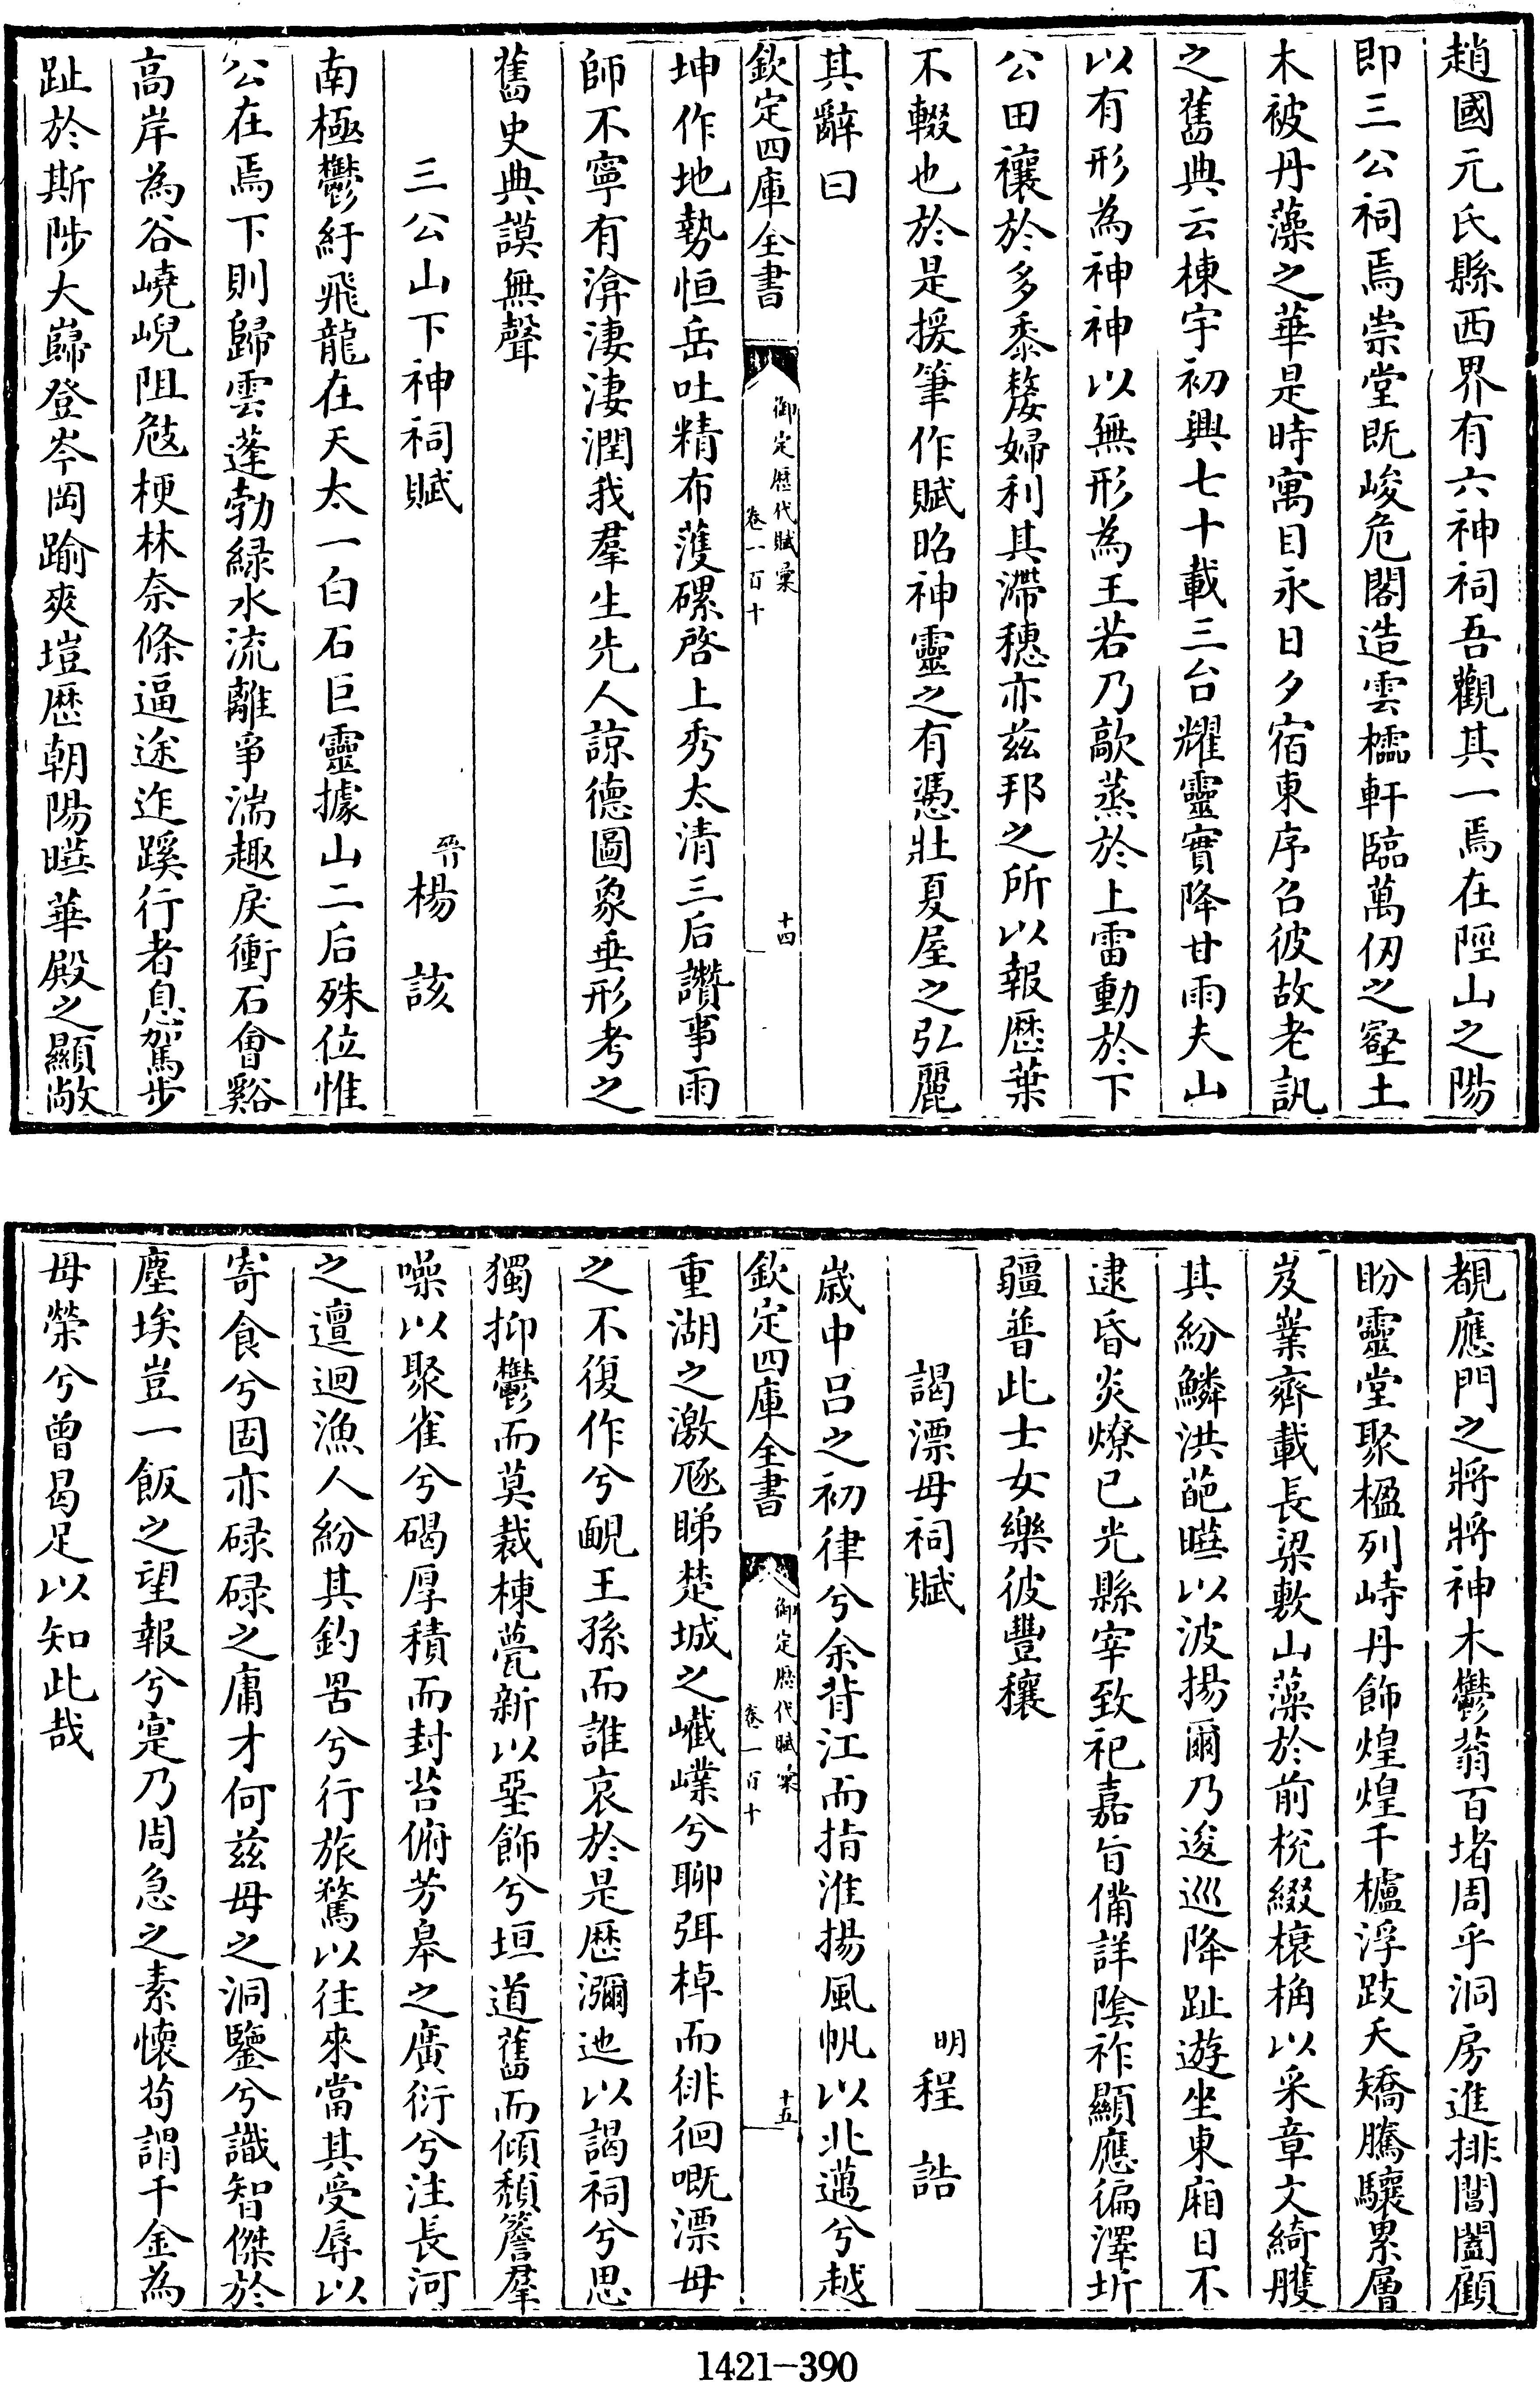 趙國元氏縣西界有六神祠吾觀其一焉在陘山之陽
即三公祠焉崇堂既峻危閣造雲櫺軒臨萬仞之壑土
木被丹藻之華是時寓目永日夕宿東序召彼故老訊
之舊典云棟宇初興七十載三台耀靈實降甘雨夫山
以有形為神神以無形為王若乃歊蒸於上雷動於下
公田禳於多黍嫠婦利其滯穗亦兹邦之所以報歴葉
不輟也於是援筆作賦昭神靈之有憑壯夏屋之弘麗
其辭曰
欽定四庫全書
御定歴代賦彙
卷一百十
十四
坤作地勢恒岳吐精布濩磥啓上秀太清三后讚事雨
師不寧有渰淒淒潤我羣生先人諒德圖象垂形考之
舊史典謨無聲
三公山下神祠賦
晉楊該
南極鬱紆飛龍在天太一白石巨靈據山二后殊位惟
公在焉下則歸雲蓬勃綠水流離爭湍趣戾衝石會谿
高岸為谷嶢崐阻𡯁梗林奈條逼途迮蹊行者息駕步
趾於斯陟大巋登岑岡踰爽塏歴朝陽曣華殿之顯敞
覩應門之將將神木鬱蓊百堵周乎洞房進排閶闔顧
盼靈堂聚楹列峙丹飾煌煌千櫨浮跂夭矯騰驤累層
岌嶪齊載長梁敷山藻於前梲綴榱桷以采章文綺雘
其紛鱗洪葩曣以波揚爾乃逡巡降趾遊坐東廂日不
逮昏炎燎已光縣宰致祀嘉旨備詳陰祚顯應徧澤圻
疆普此士女樂彼豐穰
謁漂母祠賦
明程誥
歲中呂之初律兮余背江而指淮揚風帆以北邁兮越
欽定四庫全書
御定歴代賦彙
卷一百十
十五
重湖之激豗睇楚城之巀嶫兮聊弭棹而徘徊嘅漂母
之不復作兮靦王孫而誰哀於是歴瀰迤以謁祠兮思
獨抑鬱而莫裁棟甍新以堊飾兮垣道舊而傾頽簷羣
噪以聚雀兮碣厚積而封苔俯芳皋之廣衍兮注長河
之邅迴漁人紛其釣罟兮行旅騖以往來當其受辱以
寄食兮固亦碌碌之庸才何兹母之洞鑒兮識智傑於
塵埃豈一飯之望報兮寔乃周急之素懷茍謂千金為
母榮兮曾曷足以知此哉
1421-390